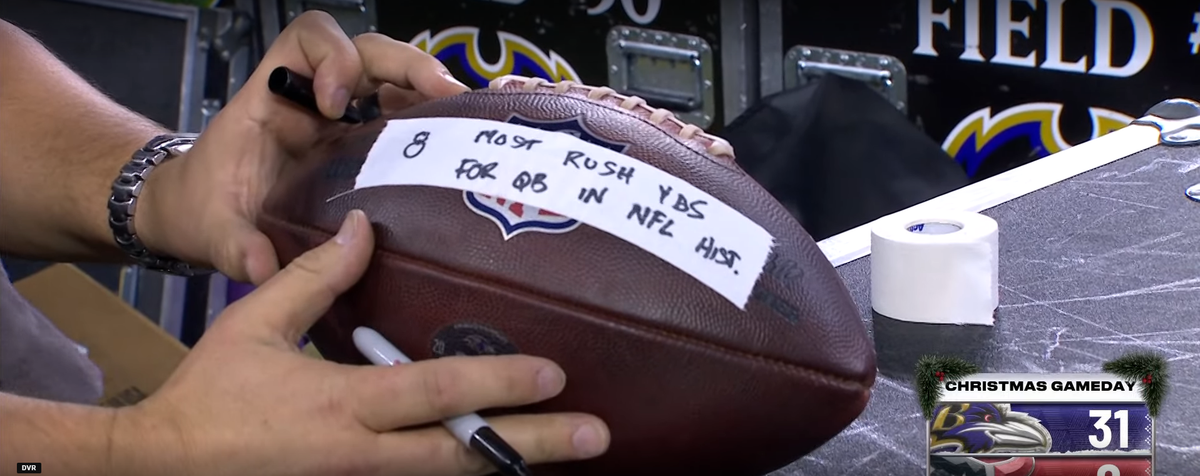 FIELD
8 MOST RUSH YDS
FOR QB IN NFL HIST.
CHRISTMAS GAMEDAY
31
DVR